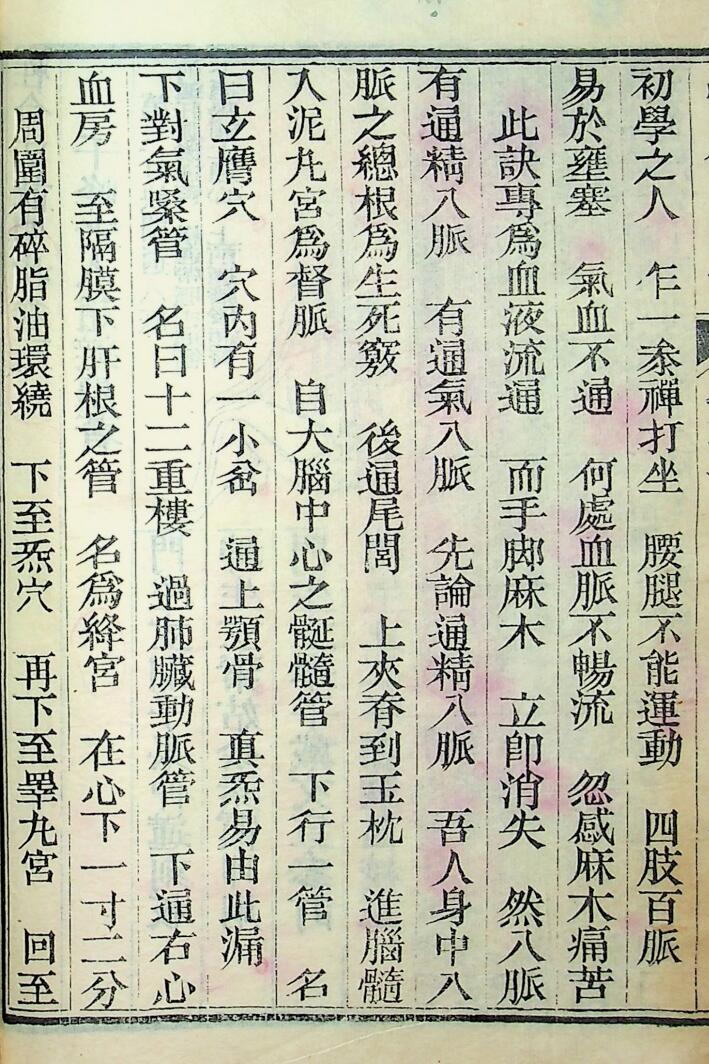 初學之人 乍一叅禪打坐 腰腿不能運動 四肢百脈
易於壅塞 氣血不通 何處血脈不暢流 忽感麻木痛苦
此訣專爲血液流通 而手脚麻木 立卽消失 然八脈
有通精八脈 有通氣八脈 先論通精八脈 吾人身中八
脈之總根爲生死竅 後通尾閭 上夾脊到玉枕 進腦髓
入泥丸宮爲督脈 自大腦中心之䯠髓管 下行一管 名
曰玄膺穴 穴內有一小岔 通上顎骨 真炁易由此漏
下對氣嗓管 名曰十二重樓 過肺臟動脈管 下通右心
血房 至隔膜下肝根之管 名爲絳宮 在心下一寸二分
周圍有碎脂油環繞 下至炁穴 再下至睪丸宮 回至